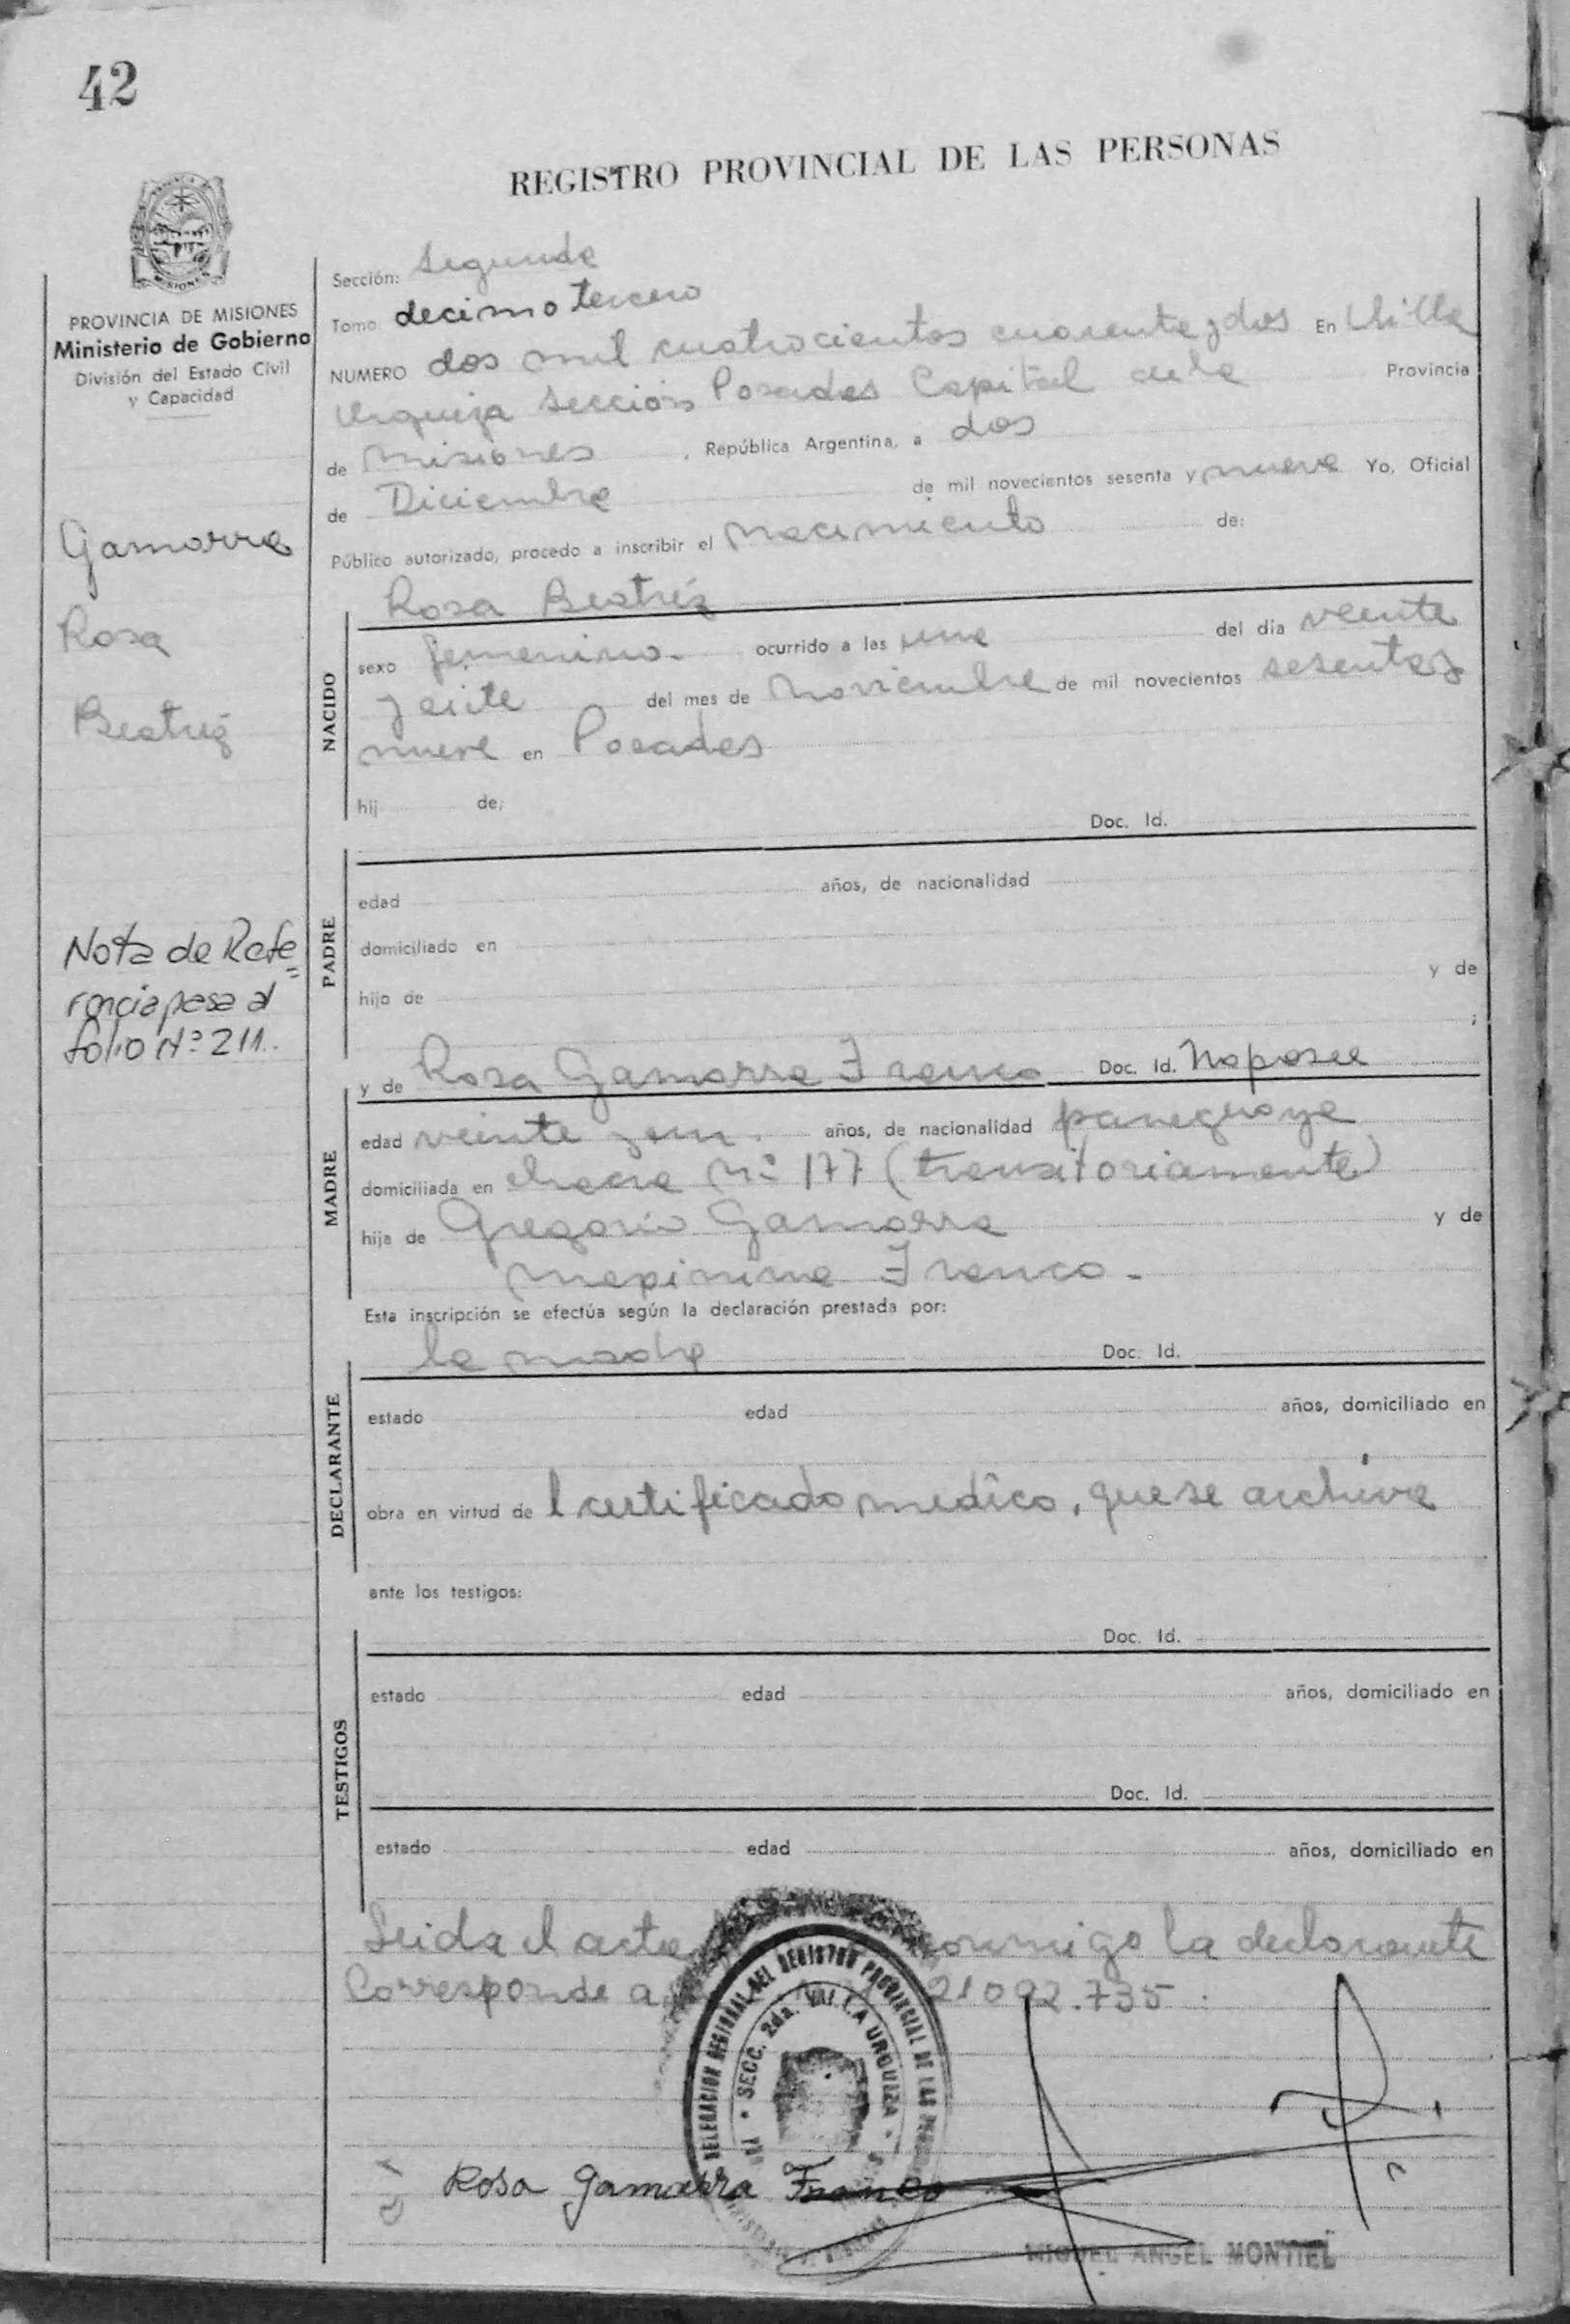 42
REGISTRO PROVINCIAL DE LAS PERSONAS
MISIONES
PROVINCIA DE MISIONES
Ministerio de Gobierno
División del Estado Civil
y Capacidad
Gamarra
Rosa
Beatriz
Nota de Refe=
rencia pasa al
folio Nº 211.
Sección: Segunda
Tomo: decimo tercero
NUMERO dos mil cuatrocientos cuarenta y dos En Villa
Urquiza Sección Posadas Capital de la Provincia
de Misiones , República Argentina, a dos
de Diciembre de mil novecientos sesenta y nueve Yo, Oficial
Público autorizado, procedo a inscribir el nacimiento de:
Rosa Beatriz
NACIDO
sexo femenino. ocurrido a las una del día veinte
y siete del mes de Noviembre de mil novecientos sesenta y
nueve en Posadas
hij de:
Doc. Id.
PADRE
edad años, de nacionalidad
domiciliado en
hijo de y de
;
y de Rosa Gamarra Franco Doc. Id. No posee
MADRE
edad veinte y un. años, de nacionalidad paraguaya
domiciliada en chacra Nº 177 (transitoriamente)
hija de Gregorio Gamarra y de
Maximina Franco.
Esta inscripción se efectúa según la declaración prestada por:
la madre Doc. Id.
DECLARANTE
estado edad años, domiciliado en
obra en virtud de l certificado medico, que se archiva
ante los testigos:
Doc. Id.
TESTIGOS
estado edad años, domiciliado en
Doc. Id.
estado edad años, domiciliado en
Leida el acta conmigo la declarante
Corresponde a 21092.735.
DELEGACION REGIONAL DEL REGISTRO PROVINCIAL DE LAS
SECC. 2da. VILLA URQUIZA
Rosa Gamarra Franco
MIGUEL ANGEL MONTIEL